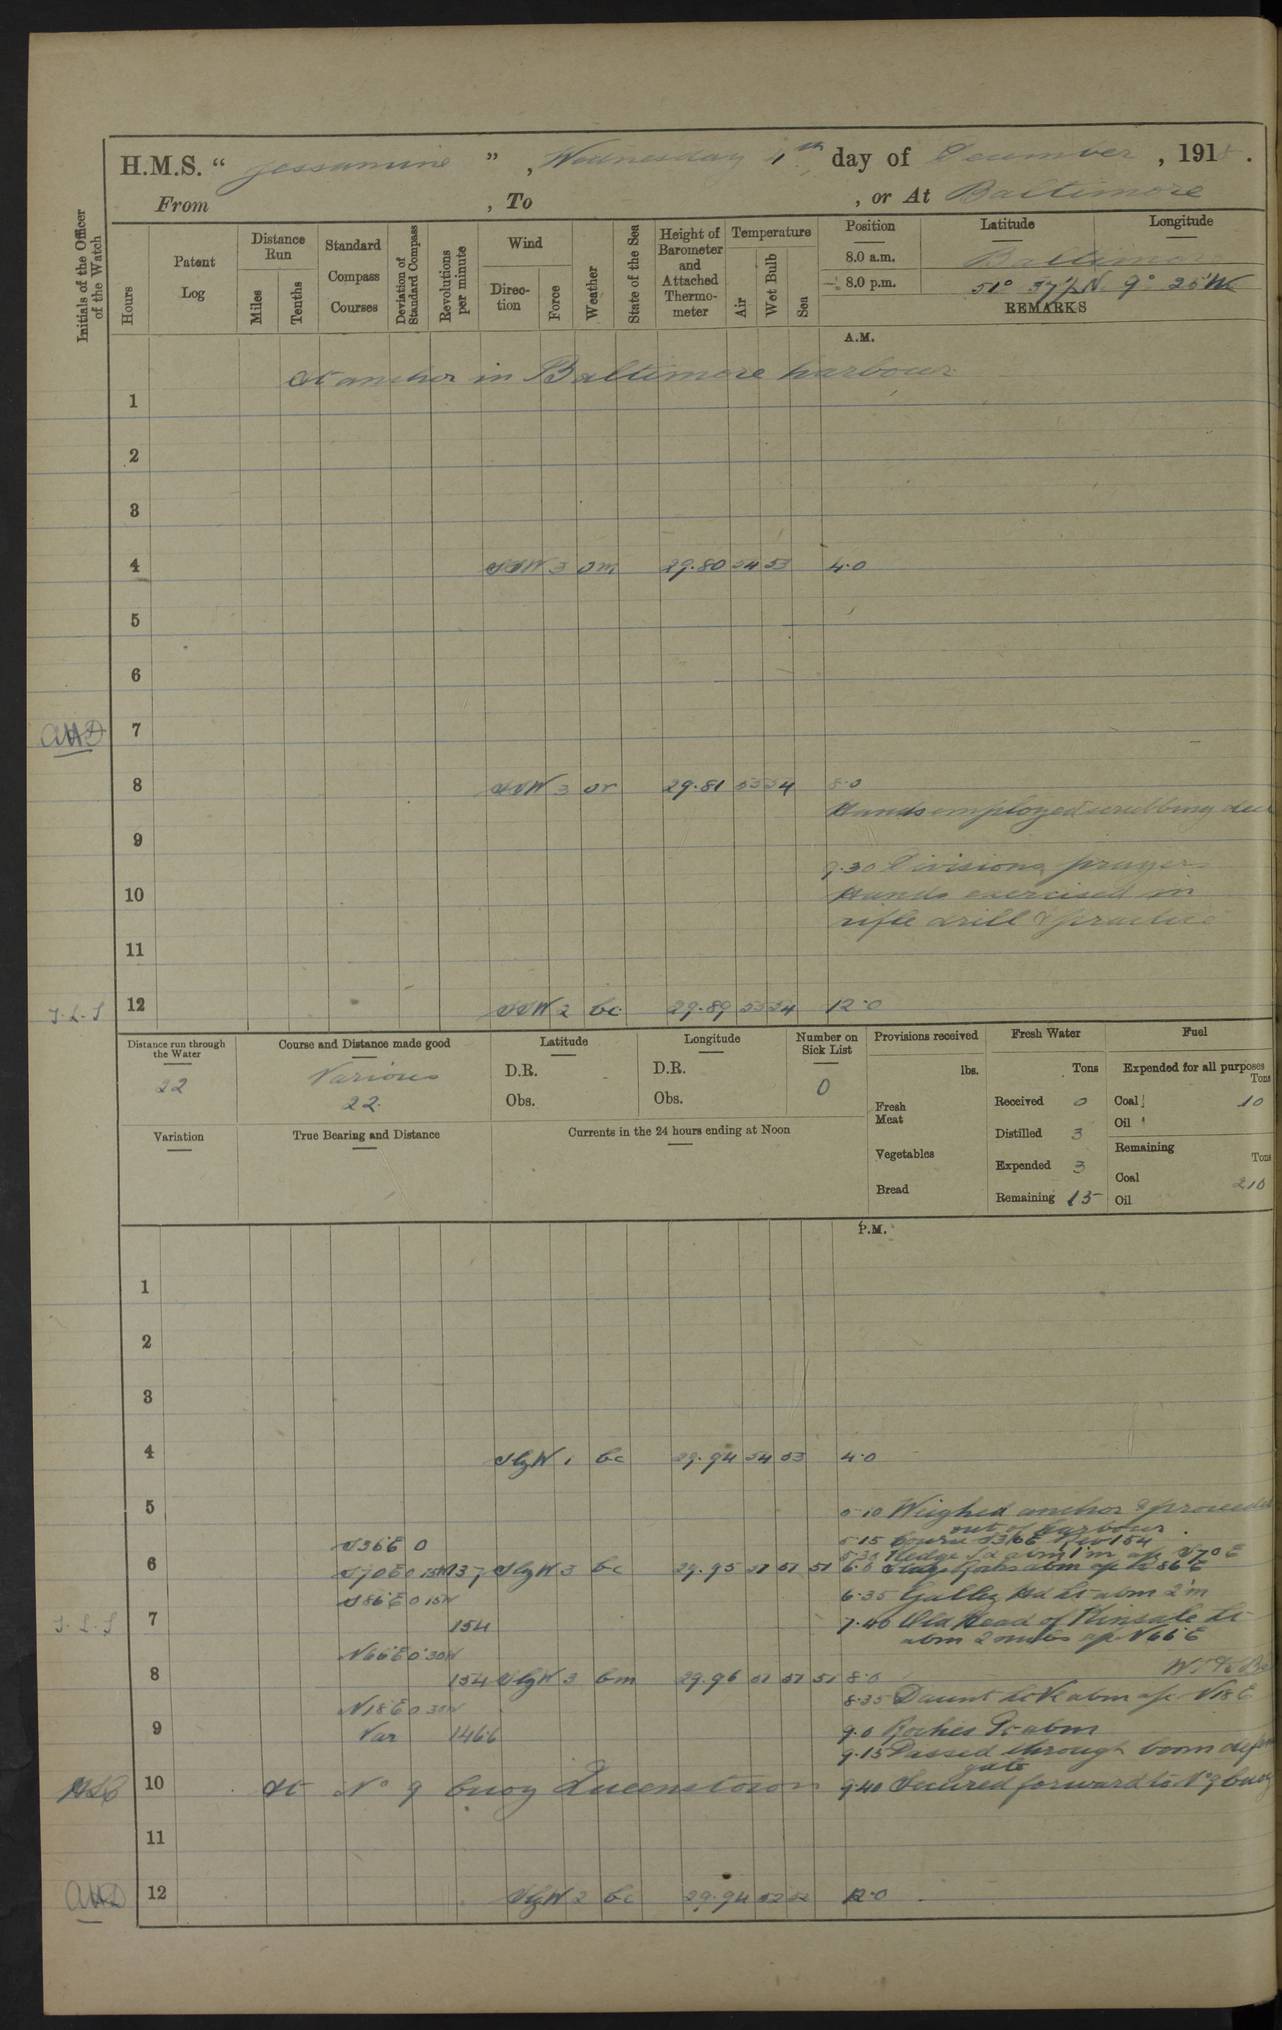 H.M.S. “ Jessamine ” , Wednesday 4th day of December , 1918 .
From , To , or At Baltimore
Initials of the Officer of the Watch
Hours
Patent Log
Distance Run
Miles
Tenths
Standard Compass Courses
Deviation of Standard Compass
Revolutions per minute
Wind
Direction
Force
Weather
State of the Sea
Height of Barometer and Attached Thermometer
Temperature
Air
Wet Bulb
Sea
Position Latitude Longitude
8.0 a.m. Baltimore
8.0 p.m. 51° N 9° 25' W
REMARKS
A.M.
At anchor in Baltimore harbour
1
2
3
4 SSW 3 om 29.80 54 53 4.0
5
6
AHD 7
8 SSW 3 or 29.81 55 54 8.0
Hands employed scrubbing
9
9.30 Divisions prayers
10 Hands exercised in
rifle drill & practice
11
J.L.S 12 SSW 2 bc 29.89 55 54 12.0
Distance run through the Water
22
Course and Distance made good
Various
22
Latitude
D.R.
Obs.
Longitude
D.R.
Obs.
Number on Sick List
0
Provisions received
lbs.
Fresh Meat
Vegetables
Bread
Fresh Water
Tons
Received 0
Distilled 3
Expended 3
Remaining 15
Fuel
Expended for all purposes
Tons
Coal 10
Oil
Remaining
Tons
Coal 210
Oil
Variation
True Bearing and Distance
Currents in the 24 hours ending at Noon
P.M.
1
2
3
4 SbyW 1 bc 29.94 54 53 4.0
5 5.10 Weighed anchor & proceeded
out of harbour
S36E 0 5.15 Course S36E Rev 154
5.30 abm 1'm a/c S70E
6 S70E 0.15W 137 SbyW 3 bc 29.95 51 51 51 6.0 Stags abm a/c S86E
S86E 0.15W 6.35 Galley Hd Lt abm 2'm
J.L.S 7 154 7.40 Old Head of Kinsale Lt
abm 2 miles a/c N66E
N66E 0.30W
8 154 SbyW 3 bm 29.96 51 51 51 8.0
N18E 0.30W 8.35 Daunt Lt V abm a/c N18E
9 Var 146.6 9.0 Roches Pt abm
9.15 Passed through boom
gate
10 At No 9 buoy Queenstown 9.40 Secured forward to No 9 buoy
11
AHD 12 SbyW 2 bc 29.94 52 52 12.0